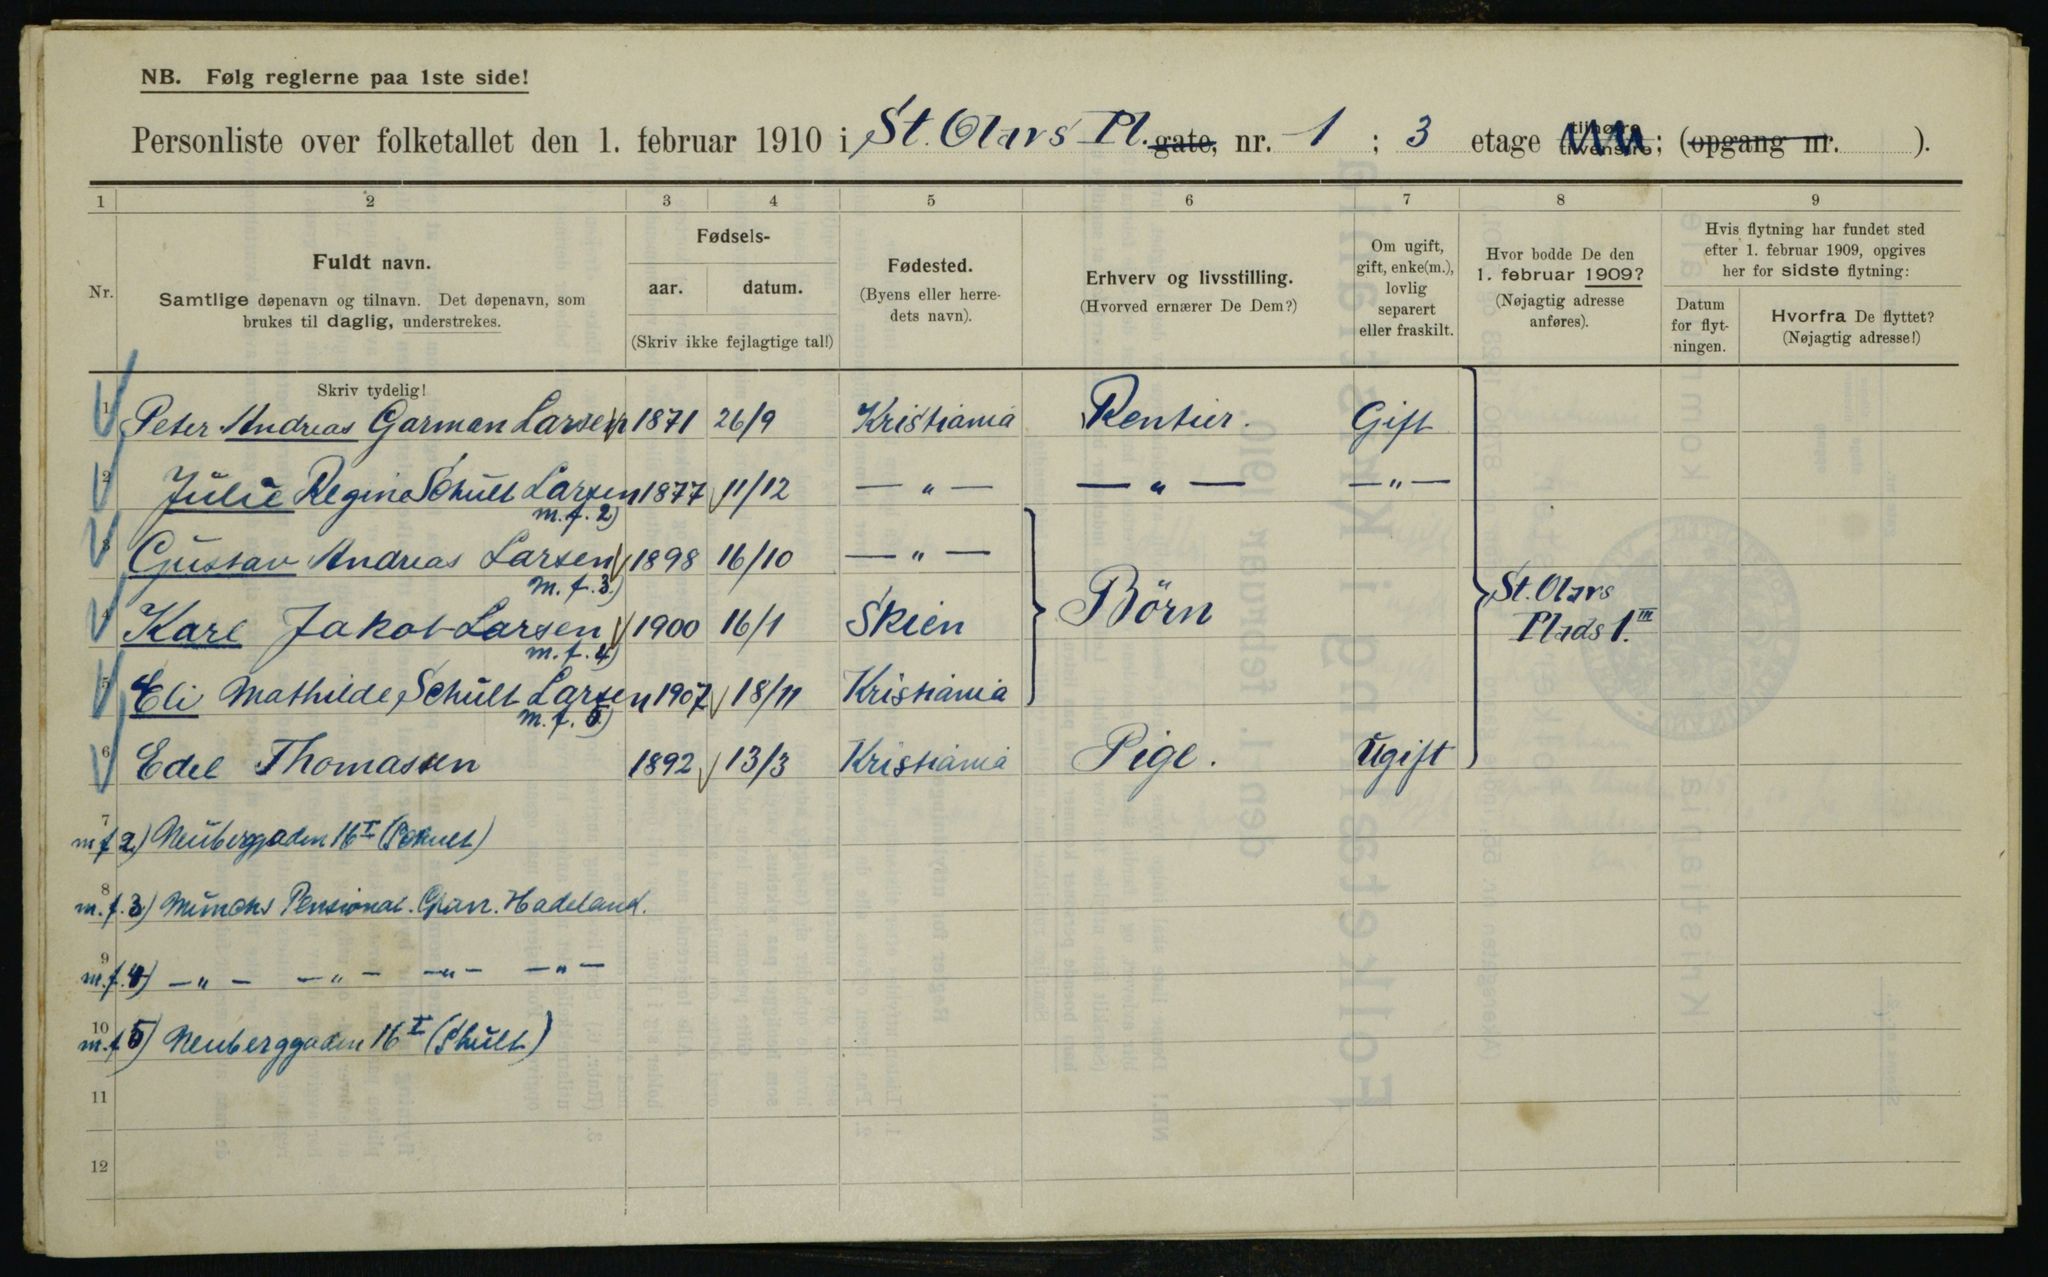 NB. Følg reglerne paa 1ste side!
Personliste over folketallet den 1. februar 1910 i St. Olavs Pl. gate, nr. 1 ; 3 etage ; (opgang nr. ).
1 2 3 4 5 6 7 8 9
Nr.
Fuldt navn.
Samtlige døpenavn og tilnavn. Det døpenavn, som
brukes til daglig, understrekes.
Fødsels-
aar. datum.
(Skriv ikke fejlagtige tal!)
Fødested.
(Byens eller herre-
dets navn).
Erhverv og livsstilling.
(Hvorved ernærer De Dem?)
Om ugift,
gift, enke(m.),
lovlig
separert
eller fraskilt.
Hvor bodde De den
1. februar 1909?
(Nøjagtig adresse
anføres).
Hvis flytning har fundet sted
efter 1. februar 1909, opgives
her for sidste flytning:
Datum
for flyt-
ningen.
Hvorfra De flyttet?
(Nøjagtig adresse!)
Skriv tydelig!
1 Peter Andreas Garman Larsen 1871 26/9 Kristiania Rentier. Gift
2 Julie Regine Schult Larsen 1877 11/12 — „ — — „ — — „ —
m.f. 2)
3 Gustav Andreas Larsen 1898 16/10 — „ —
m.f. 3)
4 Karl Jakob Larsen 1900 16/1 Skien Börn St. Olavs
Plads 1. III
m.f. 4)
5 Eli Mathilde Schult Larsen 1907 18/11 Kristiania
m.f. 5)
6 Edel Thomassen 1892 13/3 Kristiania Pige. Ugift
7 m f 2) Neuberggaden 16 I (Schult)
8 m.f. 3) Münchs Pensionat. Gran. Hadeland.
9 m.f. 4) — „ — — „ — — „ — — „ —
10 m.f 5) Neuberggaden 16 I (Schult)
11
12